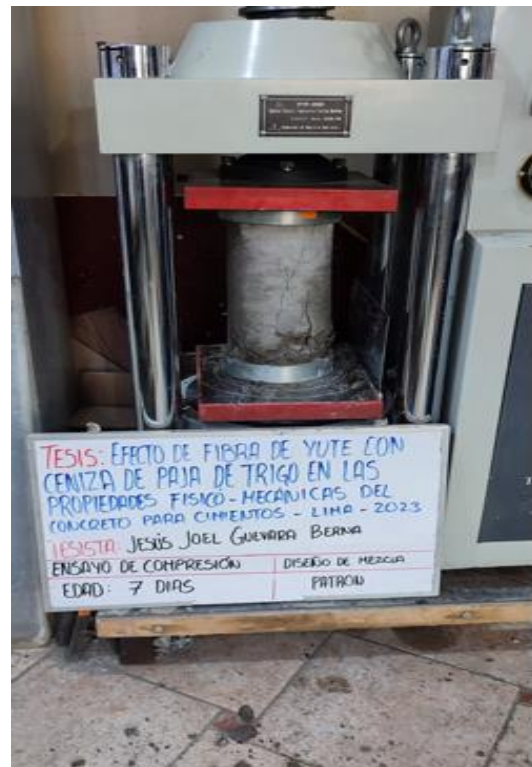 TESIS: EFECTO DE FIBRA DE YUTE CON
CENIZA DE PAJA DE TRIGO EN LAS
PROPIEDADES FISICO-MECÁNICAS DEL
CONCRETO PARA CIMIENTOS - LIMA - 2023
TESISTA: JESÚS JOEL GUEVARA BERNA
ENSAYO DE COMPRESIÓN DISEÑO DE MEZCLA
EDAD: 7 DIAS PATRON